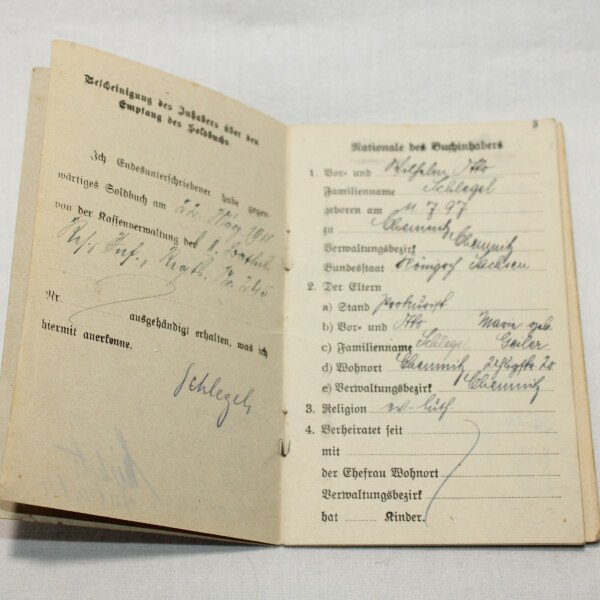 Bescheinigung des Inhabers über den
Empfang des Soldbuchs
Ich Endesunterschriebener habe gegen-
wärtiges Soldbuch am 22. März
von der Kassenverwaltung des II.
Res., Inf., Regts. Nr. 245
Nr. ausgehändigt erhalten, was ich
hiermit anerkenne.
Schlegel
3
Nationale des Buchinhabers
1. Vor- und Wilhelm Otto
Familienname Schlegel
geboren am 11 7 97
zu Chemnitz
Verwaltungsbezirk Chemnitz
Bundesstaat Königr. Sachsen
2. Der Eltern
a) Stand Prokurist
b) Vor- und Otto Marie geb.
c) Familienname Schlegel Geiler
d) Wohnort Chemnitz, 20
e) Verwaltungsbezirk Chemnitz
3. Religion ev-luth.
4. Verheiratet seit
mit
der Ehefrau Wohnort
Verwaltungsbezirk
hat Kinder.